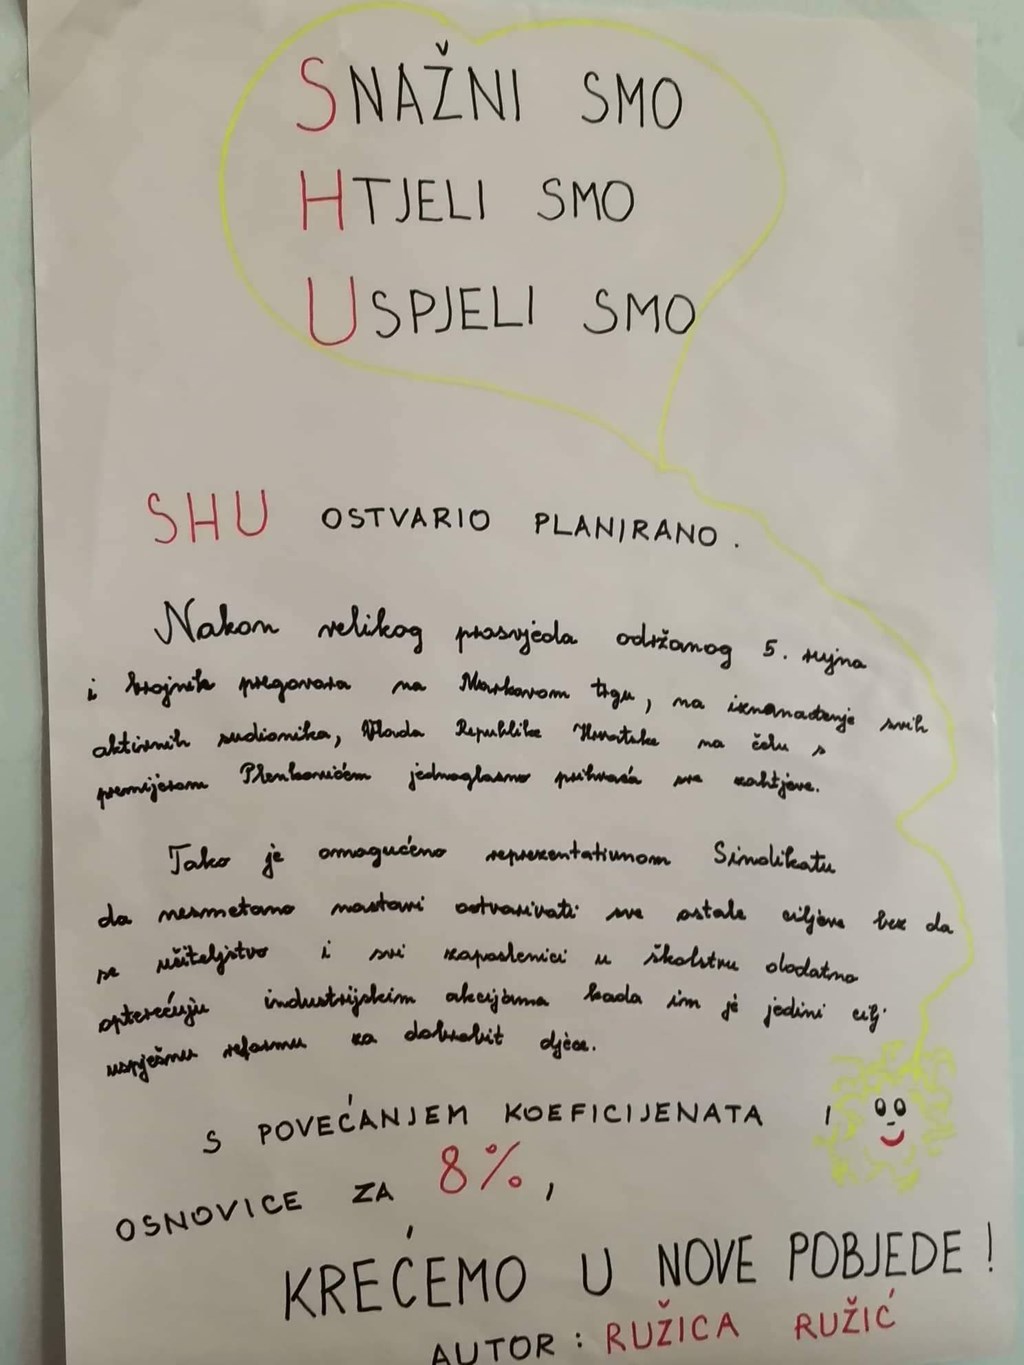 SNAŽNI SMO
HTJELI SMO
USPJELI SMO
SHU OSTVARIO PLANIRANO.
Nakon velikog prosvjeda održanog 5. rujna
i brojnih pregovora na Markovom trgu, na iznenađenje svih
aktivnih sudionika, Vlada Republike Hrvatske na čelu s
premijerom Plenkovićem jednoglasno prihvaća sve zahtjeve.
Tako je omogućeno reprezentativnom Sindikatu
da nesmetano nastavi ostvarivati sve ostale ciljeve bez da
se učiteljstvo i svi zaposlenici u školstvu dodatno
opterećuju industrijskim akcijama kada im je jedini cilj
uspješnu reformu za dobrobit djece.
S POVEĆANJEM KOEFICIJENATA I
OSNOVICE ZA 8%,
KREĆEMO U NOVE POBJEDE!
AUTOR: RUŽICA RUŽIĆ